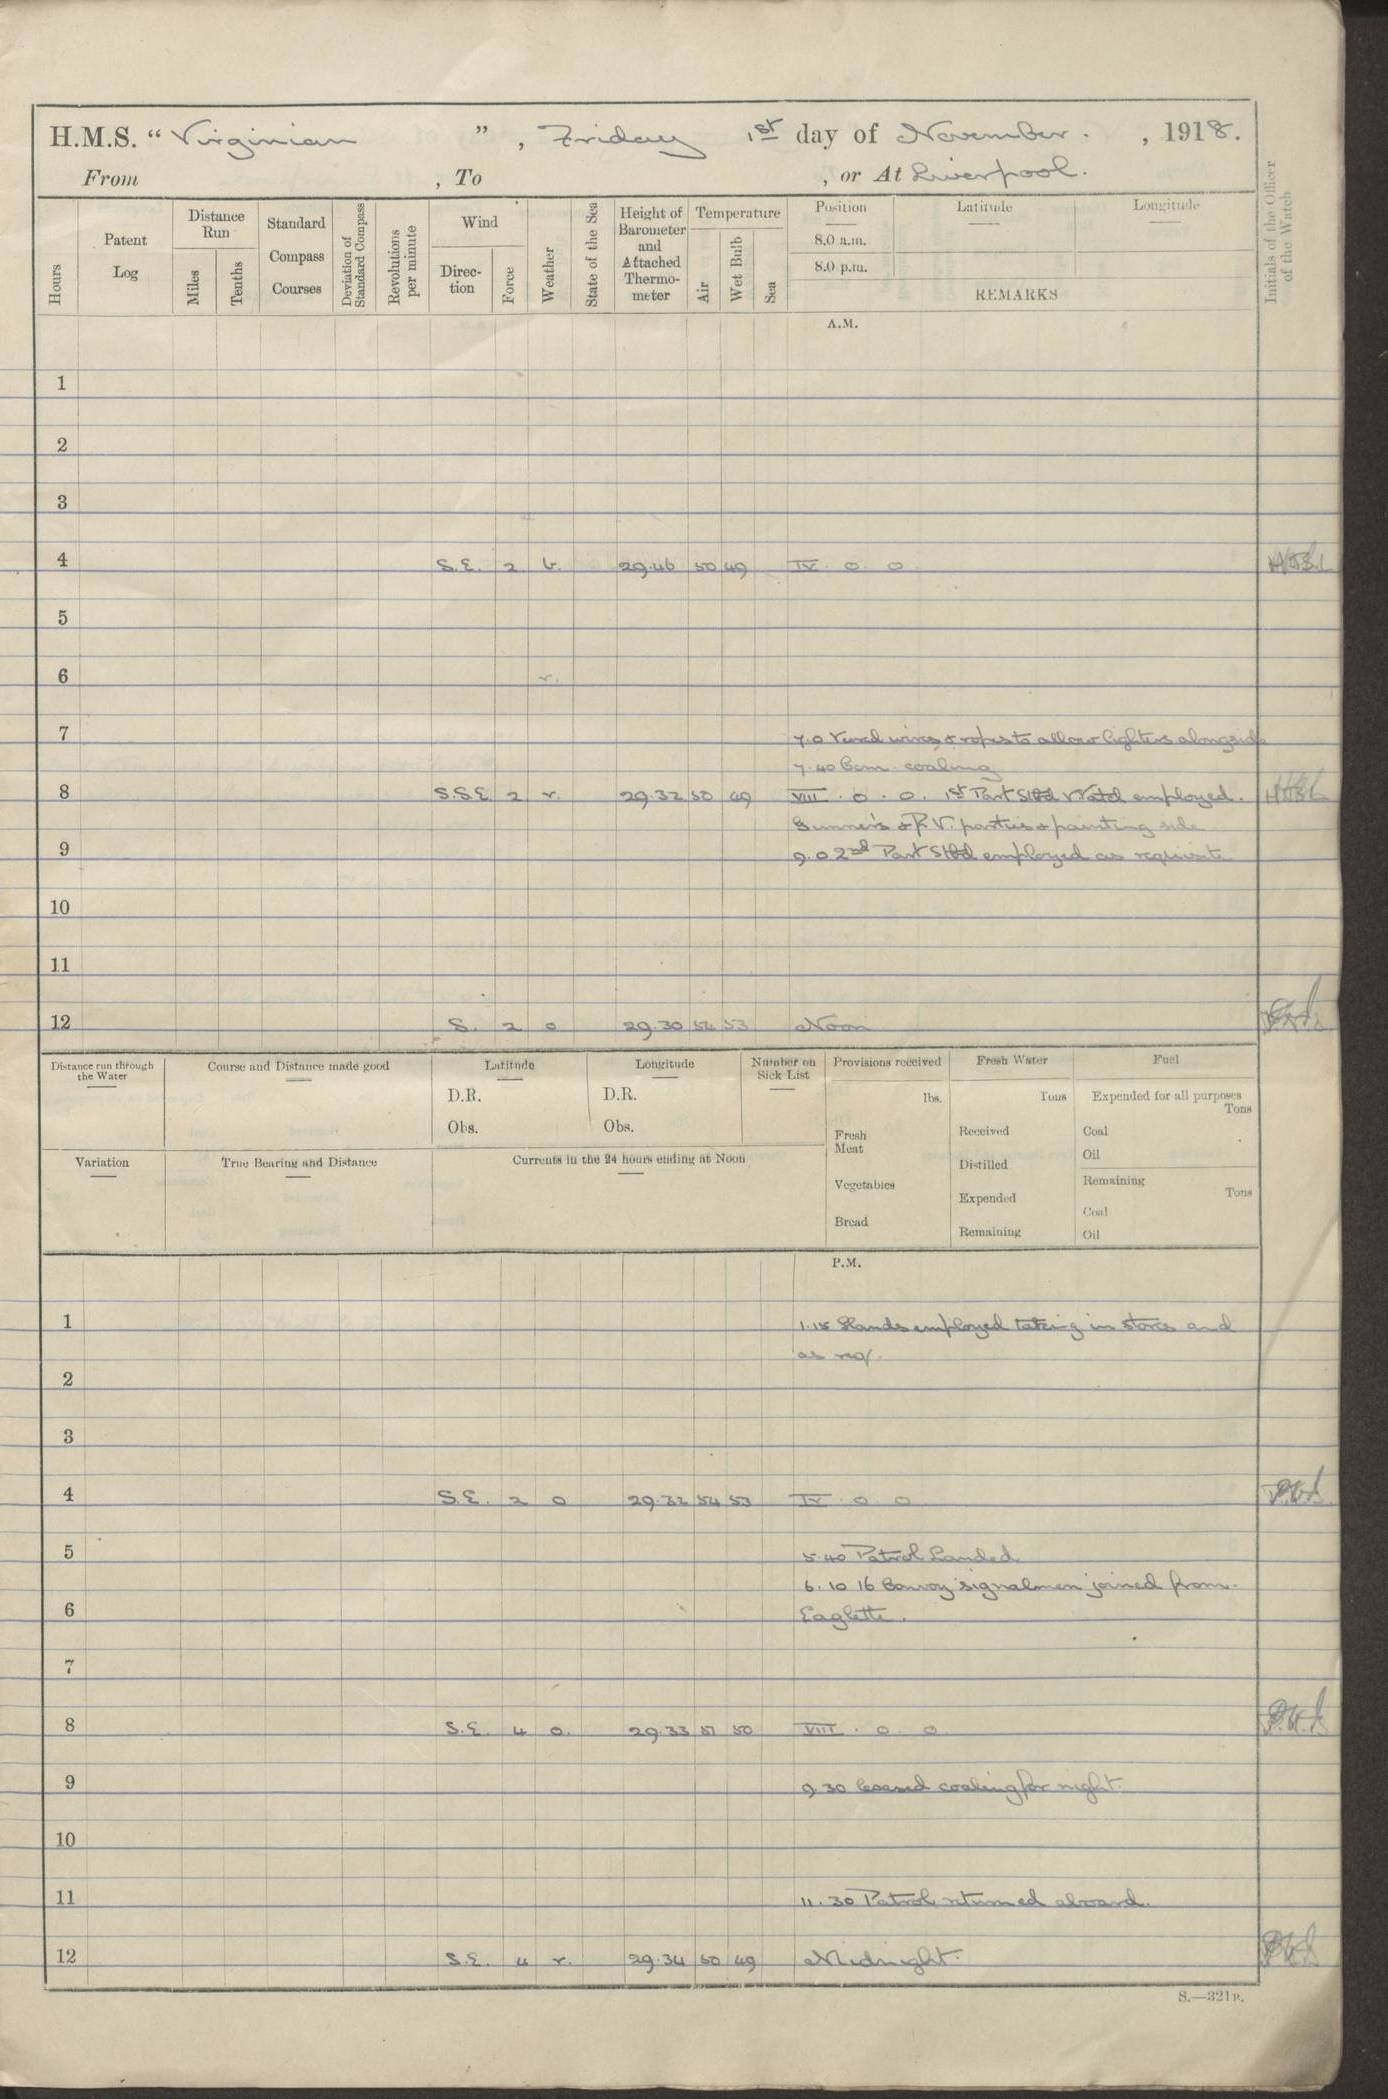 H.M.S. “Virginian”, Friday 1st day of November. , 1918.
From , To , or At Liverpool.
Hours
Patent Log
Distance Run
Miles
Tenths
Standard Compass Courses
Deviation of Standard Compass
Revolutions per minute
Wind
Direc-tion
Force
Weather
State of the Sea
Height of Barometer and Attached Thermo-meter
Temperature
Air
Wet Bulb
Sea
Position
Latitude
Longitude
8.0 a.m.
8.0 p.m.
REMARKS
Initials of the Officer of the Watch
A.M.
1
2
3
4 S.E. 2 b. 29.46 50 49 IV. 0 0
5
6 r.
7 7.0 wires & ropes to allow lighters alongside
7.40 Com. coaling
8 S.S.E 2 r. 29.32 50 49 VIII. 0. 0. 1st Part Stbd Watch employed.
Gunner's & R.V. parties & painting side
9 9.0 2nd Part Stbd employed as requisite
10
11
12 S. 2 o 29.30 54 53 Noon
Distance run through the Water
Course and Distance made good
Latitude
D.R.
Obs.
Longitude
D.R.
Obs.
Number on Sick List
Provisions received
lbs.
Fresh Meat
Vegetables
Bread
Fresh Water
Tons
Received
Distilled
Expended
Remaining
Fuel
Expended for all purposes
Tons
Coal
Oil
Remaining
Tons
Coal
Oil
Variation
True Bearing and Distance
Currents in the 24 hours ending at Noon
P.M.
1 1.15 Hands employed taking in stores and
as req/.
2
3
4 S.E. 2 o 29.32 54 53 IV. 0 0
5 5.40 Patrol Landed
6.10 16 Convoy signalmen joined from
6 Eaglette.
7
8 S.E. 4 o. 29.33 51 50 VIII. 0 0
9 9.30 Ceased coaling for night.
10
11 11.30 Patrol returned aboard.
12 S.E. 4 r. 29.34 50 49 Midnight.
S.—321B.